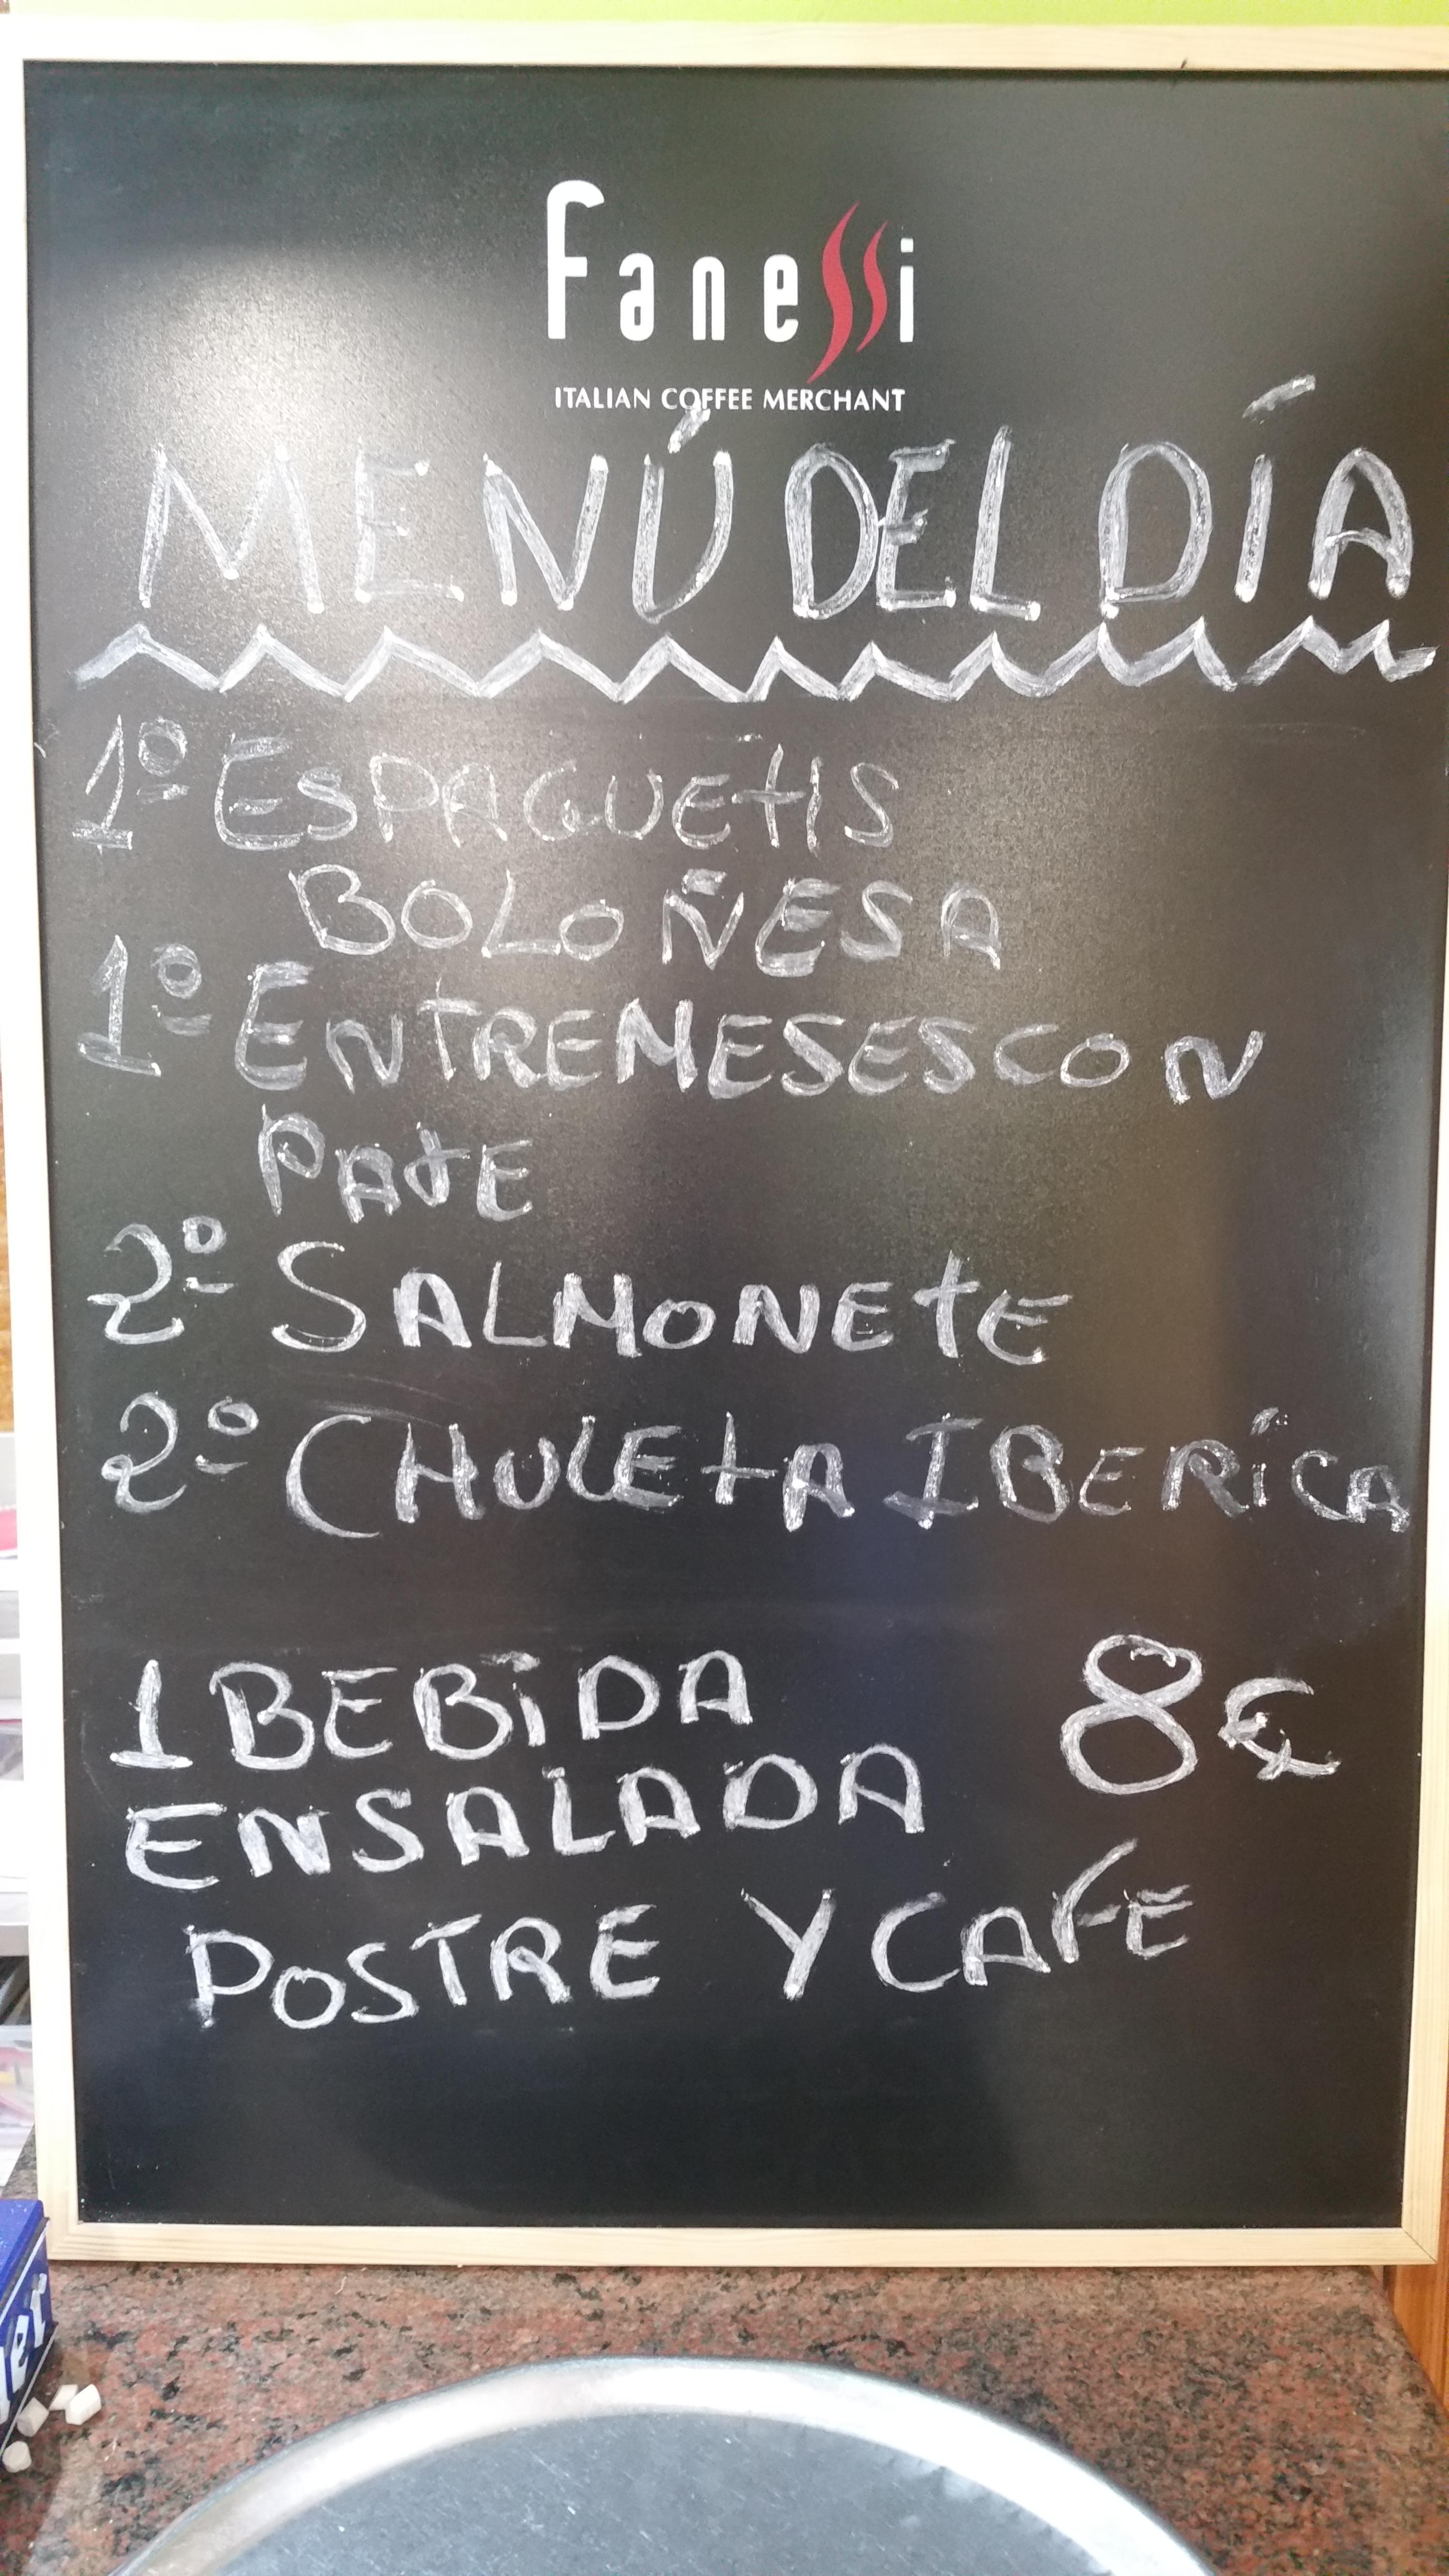 Fanessi
ITALIAN COFFEE MERCHANT
MENÚ DEL DÍA
1º ESPAGUETIS
BOLOÑESA
1º ENTREMESES CON
PATE
2º SALMONETE
2º CHULETA IBERICA
1 BEBIDA 8€
ENSALADA
POSTRE Y CAFE